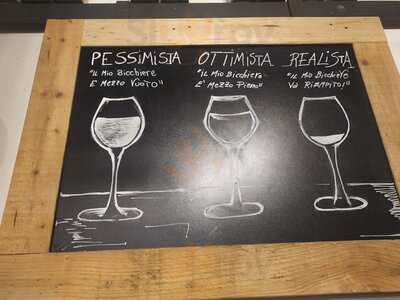 PESSIMISTA OTTIMISTA REALISTA
"IL MIO BICCHIERE "IL MIO BICCHIERE "IL MIO BICCHIERE
E' MEZZO VUOTO" E' MEZZO PIENO" VA RIEMPITO!"